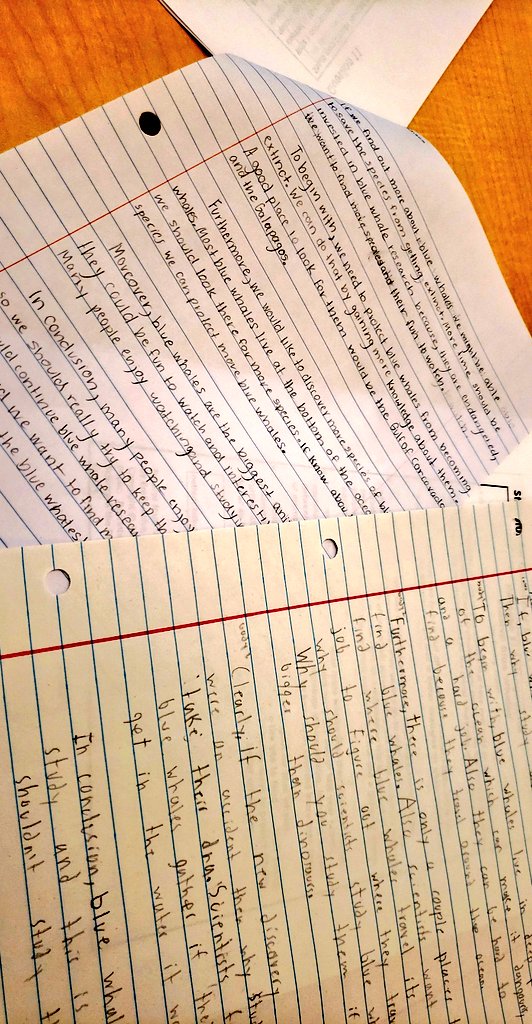 If we find out more about blue whales we might be able
to save the species from getting extinct. More time should be
invested in blue whale research because they are endangered,
we want to find more species and their fun to watch.
To begin with, we need to protect blue whales from becoming
extinct. We can do that by gaining more knowledge about them.
A good place to look for them would be the Gulf of Corcovado
and the Galapagos.
Furthermore, we would like to discover more species of bl
whales. Most blue whales live at the bottom of the ocea
we should look there for more species. If know about
species we can protect more blue whales.
Moreover, blue whales are the biggest ani
they could be fun to watch and interesti
Many people enjoy watching and studyi
In conclusion, many people enjoy
so we should really try to keep th
uld continue blue whale resear
d we want to find m
the blue whales!
Then why
To begin with, blue whales live in
of the ocean which can make it
and a hard job. Also they can be hard to
find because they travel around the ocean
Furthermore, there is only a couple places t
find blue whales. Also scientists want
find where blue whales travel its
job to figure out where they trav
why should scientists study blue w
Why should you study them if
bigger than dinosaurs
Clearly, if the new discovery
were on accident then why stu
'take' their dna. Scientists
blue whales gather if the
get in the water it w
In conclusion, blue whal
study and this is
shouldn't study t